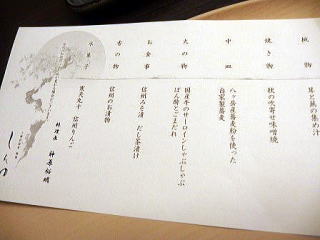 椀物
茸と蕪の集め汁
焼き物
秋の吹寄せ味噌焼
中皿
八ヶ岳産蕎麦粉を使った
自家製蕎麦
火の物
国産牛のサーロインしゃぶしゃぶ
ぽん酢とごまだれ
お食事
信州みそ漬 だし茶漬け
香の物
信州のお漬物
水菓子
信州りんご
料理長